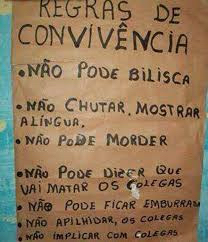 REGRAS DE
CONVIVÊNCIA
• NÃO PODE BILISCA
• NÃO CHUTAR, MOSTRAR
A LÍNGUA.
• NÃO PODE MORDER
• NÃO PODE DIZER QUE
VAI MATAR OS COLEGAS
• NÃO PODE FICAR EMBURRA
• NÃO APILHIDAR, OS COLEGAS
• NÃO IMPLICAR COM COLEGAS